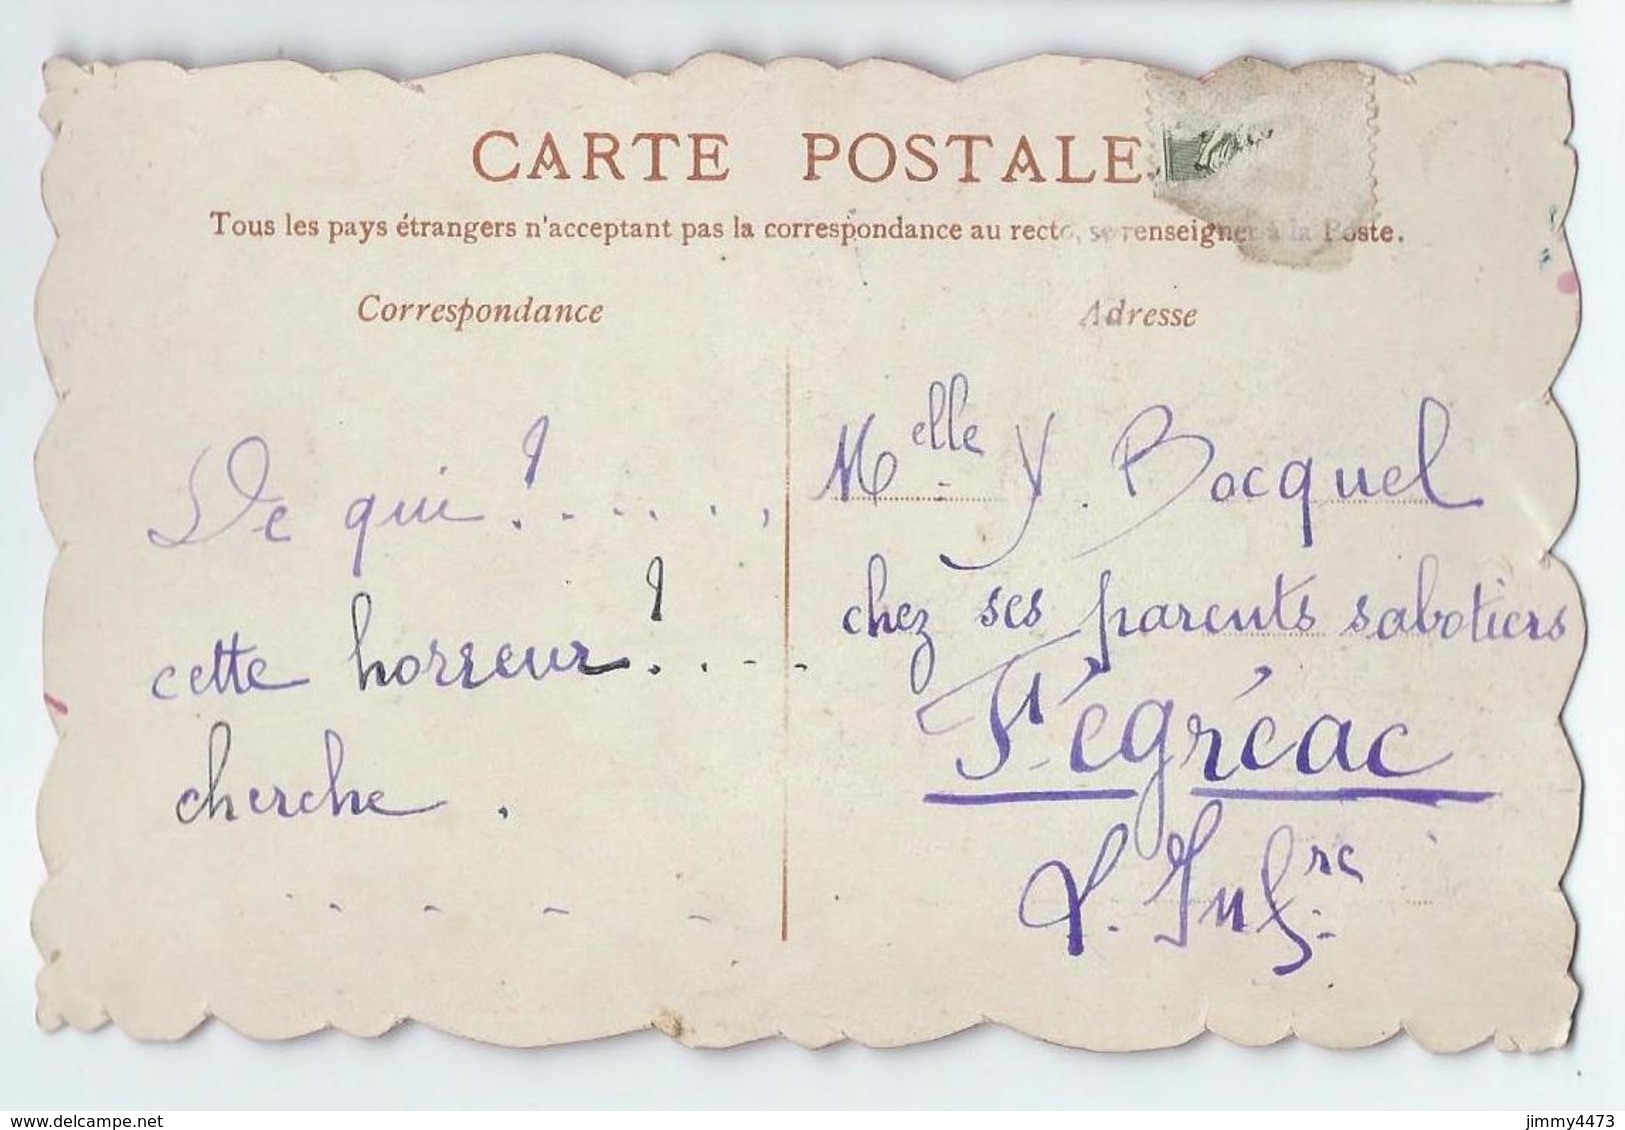 CARTE POSTALE
Tous les pays étrangers n'acceptant pas la correspondance au recto, se renseigner à la Poste.
Correspondance
Adresse
De qui ! . . . . . ,
cette horreur ! . . - .
cherche .
Melle Y. Bocquel
chez ses parents sabotiers
Fégréac
L. Infre
delcampe.net
jimmy4473